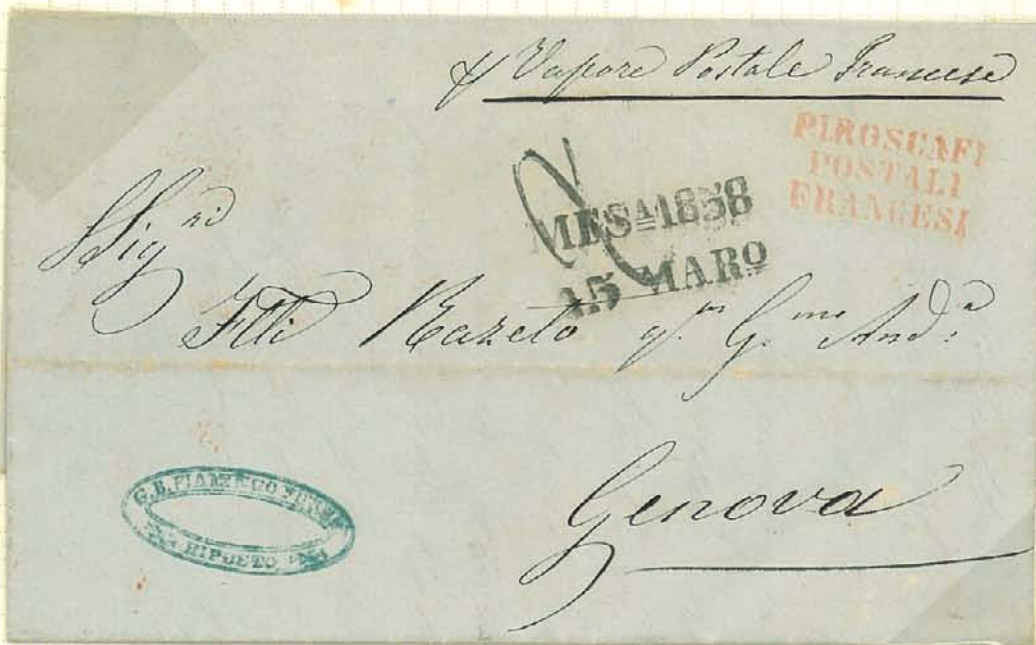 Vapore Postale Francese
PIROSCAFI
POSTALI
FRANCESI
MESᴬ 1858
15 MARᴼ
Sigⁿⁱ
Flli Razeto q.ᵐ G.ᵐᵉ And.ᵃ
G. B. FIAMINGO
RIPOSTO
Genova